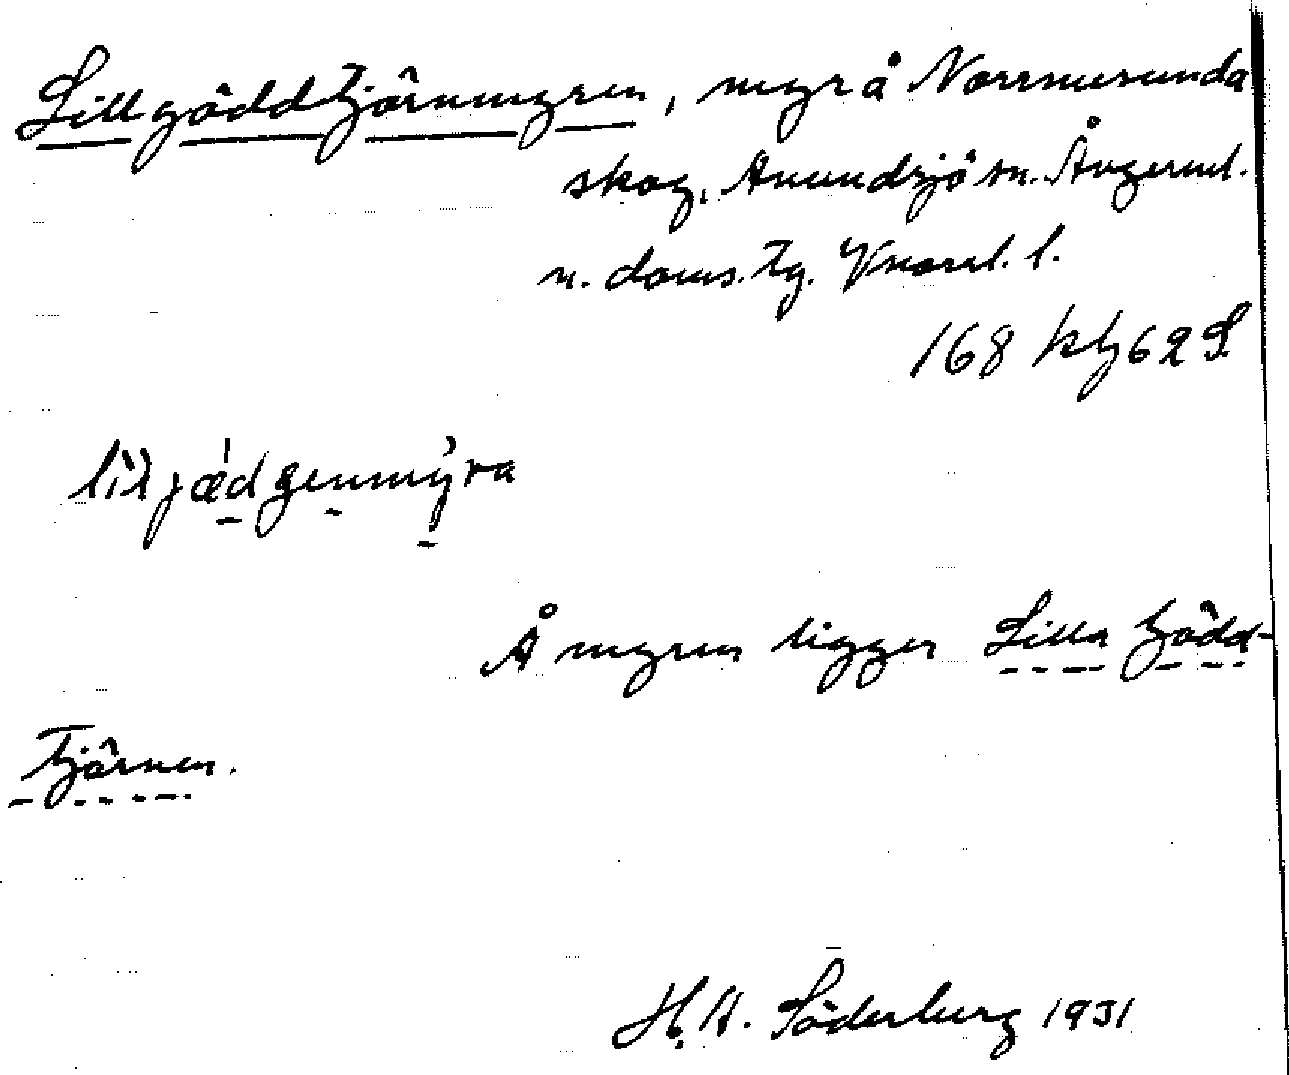 Lillgäddtjärnmyren, myr å Norrmesunda
skog, Anundsjö sn. Ångerml.
n. doms. tg. Vnorrl. l.
168 kbg 62 S
Å myren ligger Lilla Gädd-
tjärnen.
H. A. Söderberg 1931